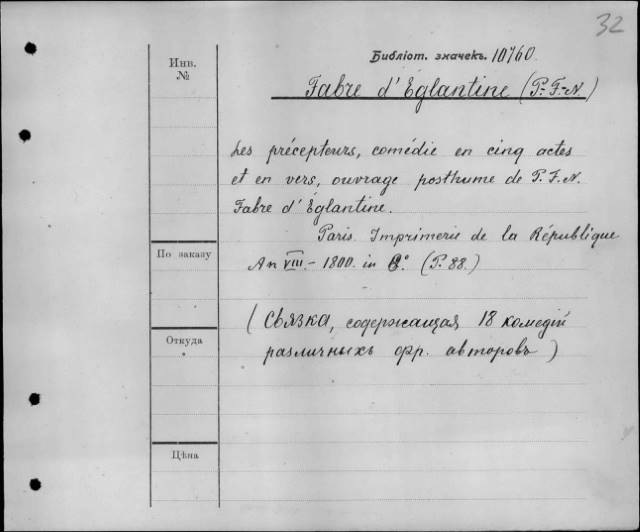 32
Библіот. значекъ. 10760.
Инв.
№
Fabre d'Églantine (P.-F.-N.)
Les précepteurs, comédie en cinq actes
et en vers, ouvrage posthume de P. F. N.
Fabre d'Églantine.
Paris. Imprimerie de la République
По заказу
An VIII.– 1800. in 8.° (P. 88.)
(Связка, содержащая 18 комедій
Откуда
различныхъ фр. авторовъ)
Цѣна